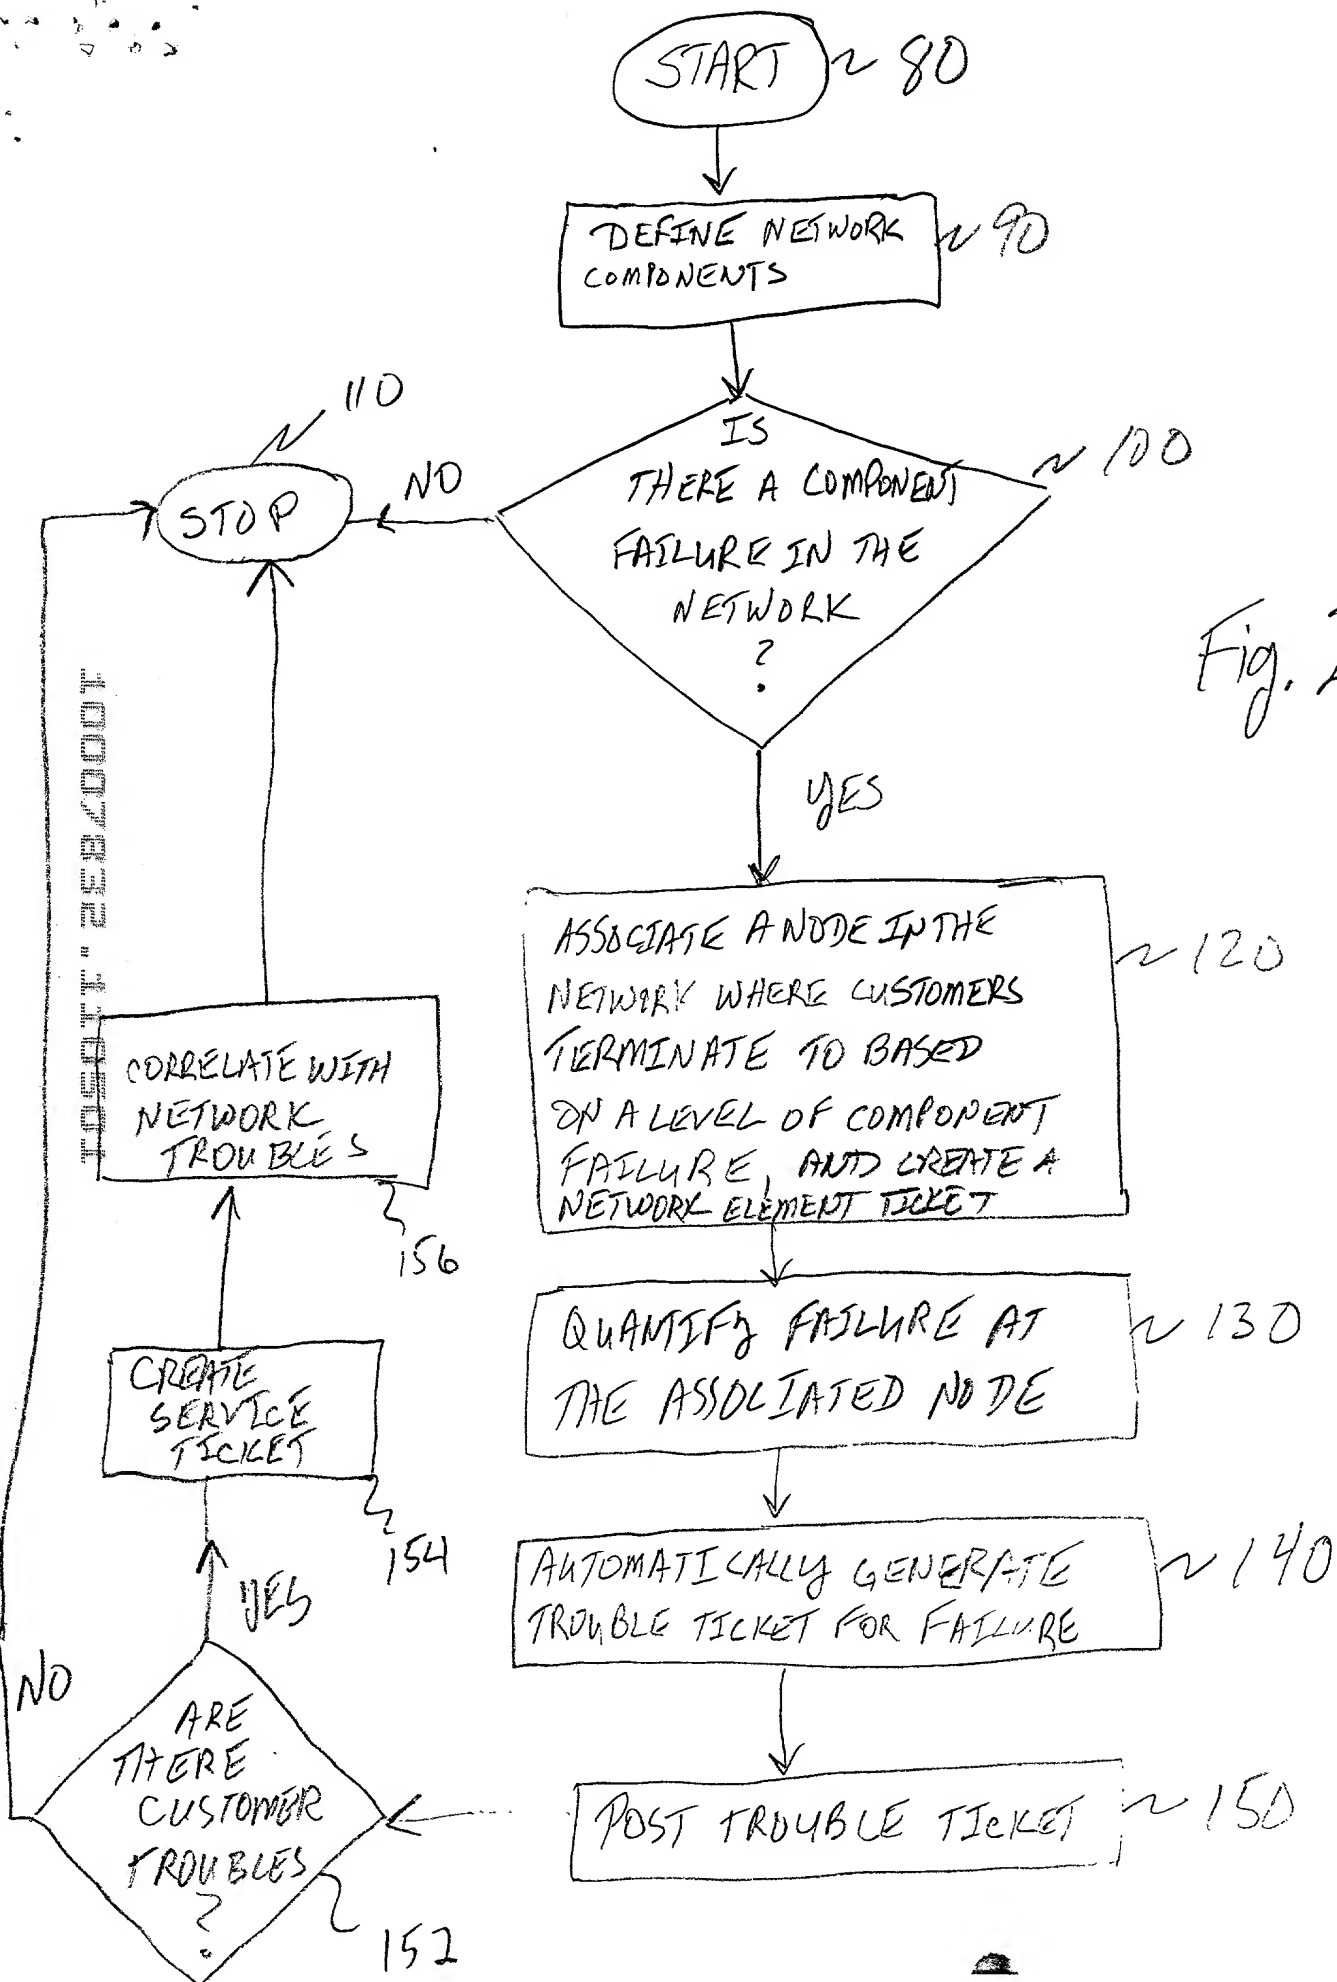 START
80
DEFINE NETWORK
COMPONENTS
90
110
STOP
NO
IS
THERE A COMPONENT
FAILURE IN THE
NETWORK
?
100
Fig. 2
YES
10007832.110501
ASSOCIATE A NODE IN THE
NETWORK WHERE CUSTOMERS
TERMINATE TO BASED
ON A LEVEL OF COMPONENT
FAILURE, AND CREATE A
NETWORK ELEMENT TICKET
120
CORRELATE WITH
NETWORK
TROUBLES
156
QUANTIFY FAILURE AT
THE ASSOCIATED NODE
130
CREATE
SERVICE
TICKET
154
AUTOMATICALLY GENERATE
TROUBLE TICKET FOR FAILURE
140
YES
NO
ARE
THERE
CUSTOMER
TROUBLES
?
152
POST TROUBLE TICKET
150